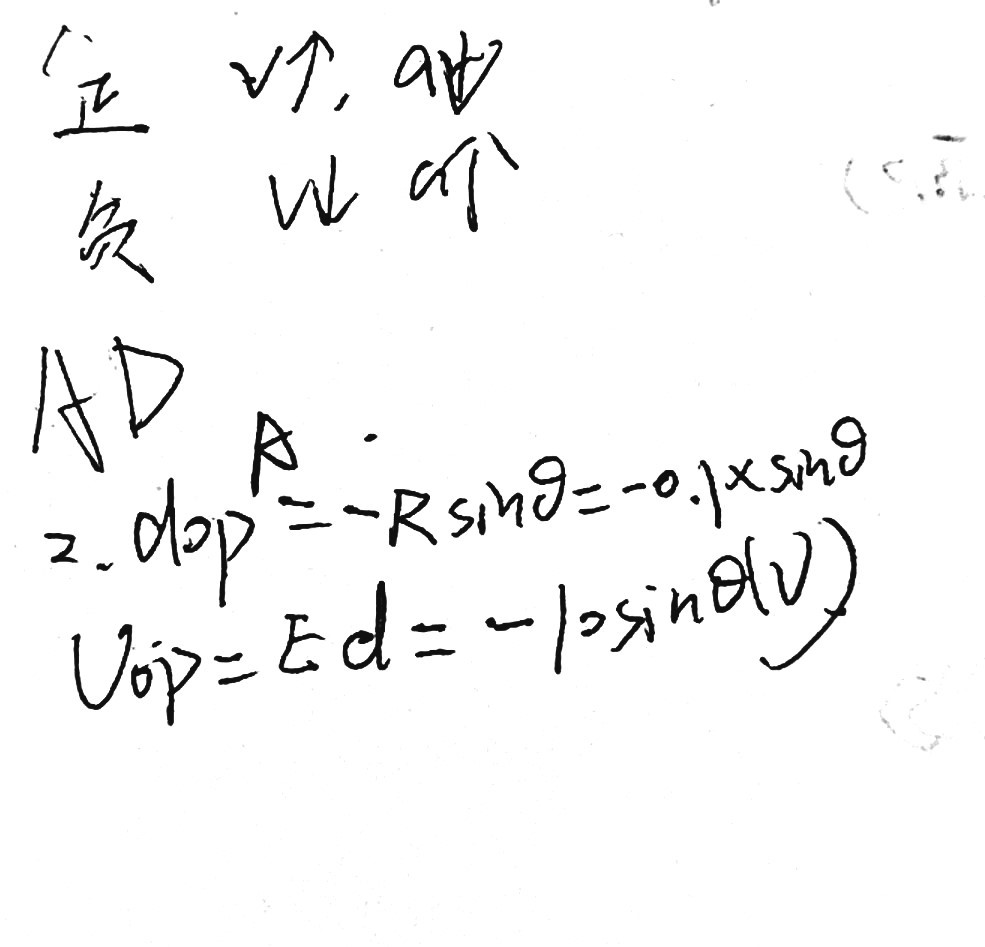 正 v↑, a↓
负 v↓ a↑
AD
A
2. dop = -R sinθ = -0.1×sinθ
Uop = Ed = -10sinθ(V)